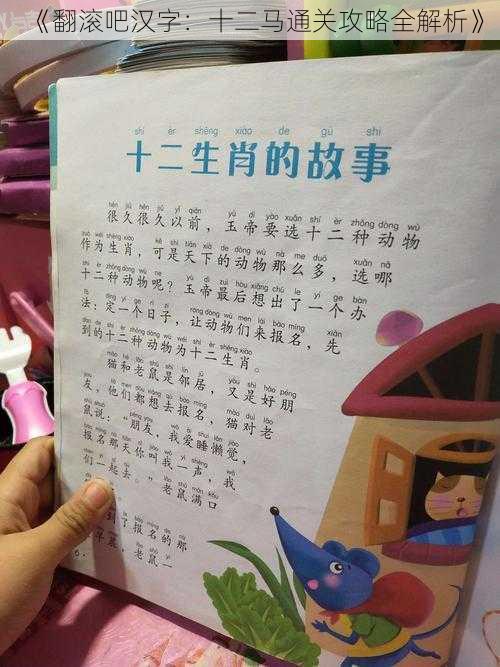 《翻滚吧汉字：十二马通关攻略全解析》
shí èr shēng xiào de gù shi
十二生肖的故事
hěn jiǔ hěn jiǔ yǐ qián yù dì yào xuǎn shí èr zhǒng dòng wù
很久很久以前，玉帝要选十二种动物
zuò wéi shēng xiào kě shì tiān xià de dòng wù nà me duō xuǎn nǎ
作为生肖，可是天下的动物那么多，选哪
shí èr zhǒng dòng wù ne yù dì zuì hòu xiǎng chū le yí gè bàn
十二种动物呢？玉帝最后想出了一个办
法，定一个日子，让动物们来报名，先
到的十二种动物为十二生肖。
猫和老鼠是邻居，又是好朋
友，他们都想去报名，猫对老
鼠说：“朋友，我爱睡懒觉，
报名那天你叫我一声，我
们一起去。”老鼠满口
到了报名的那
早晨，老鼠一